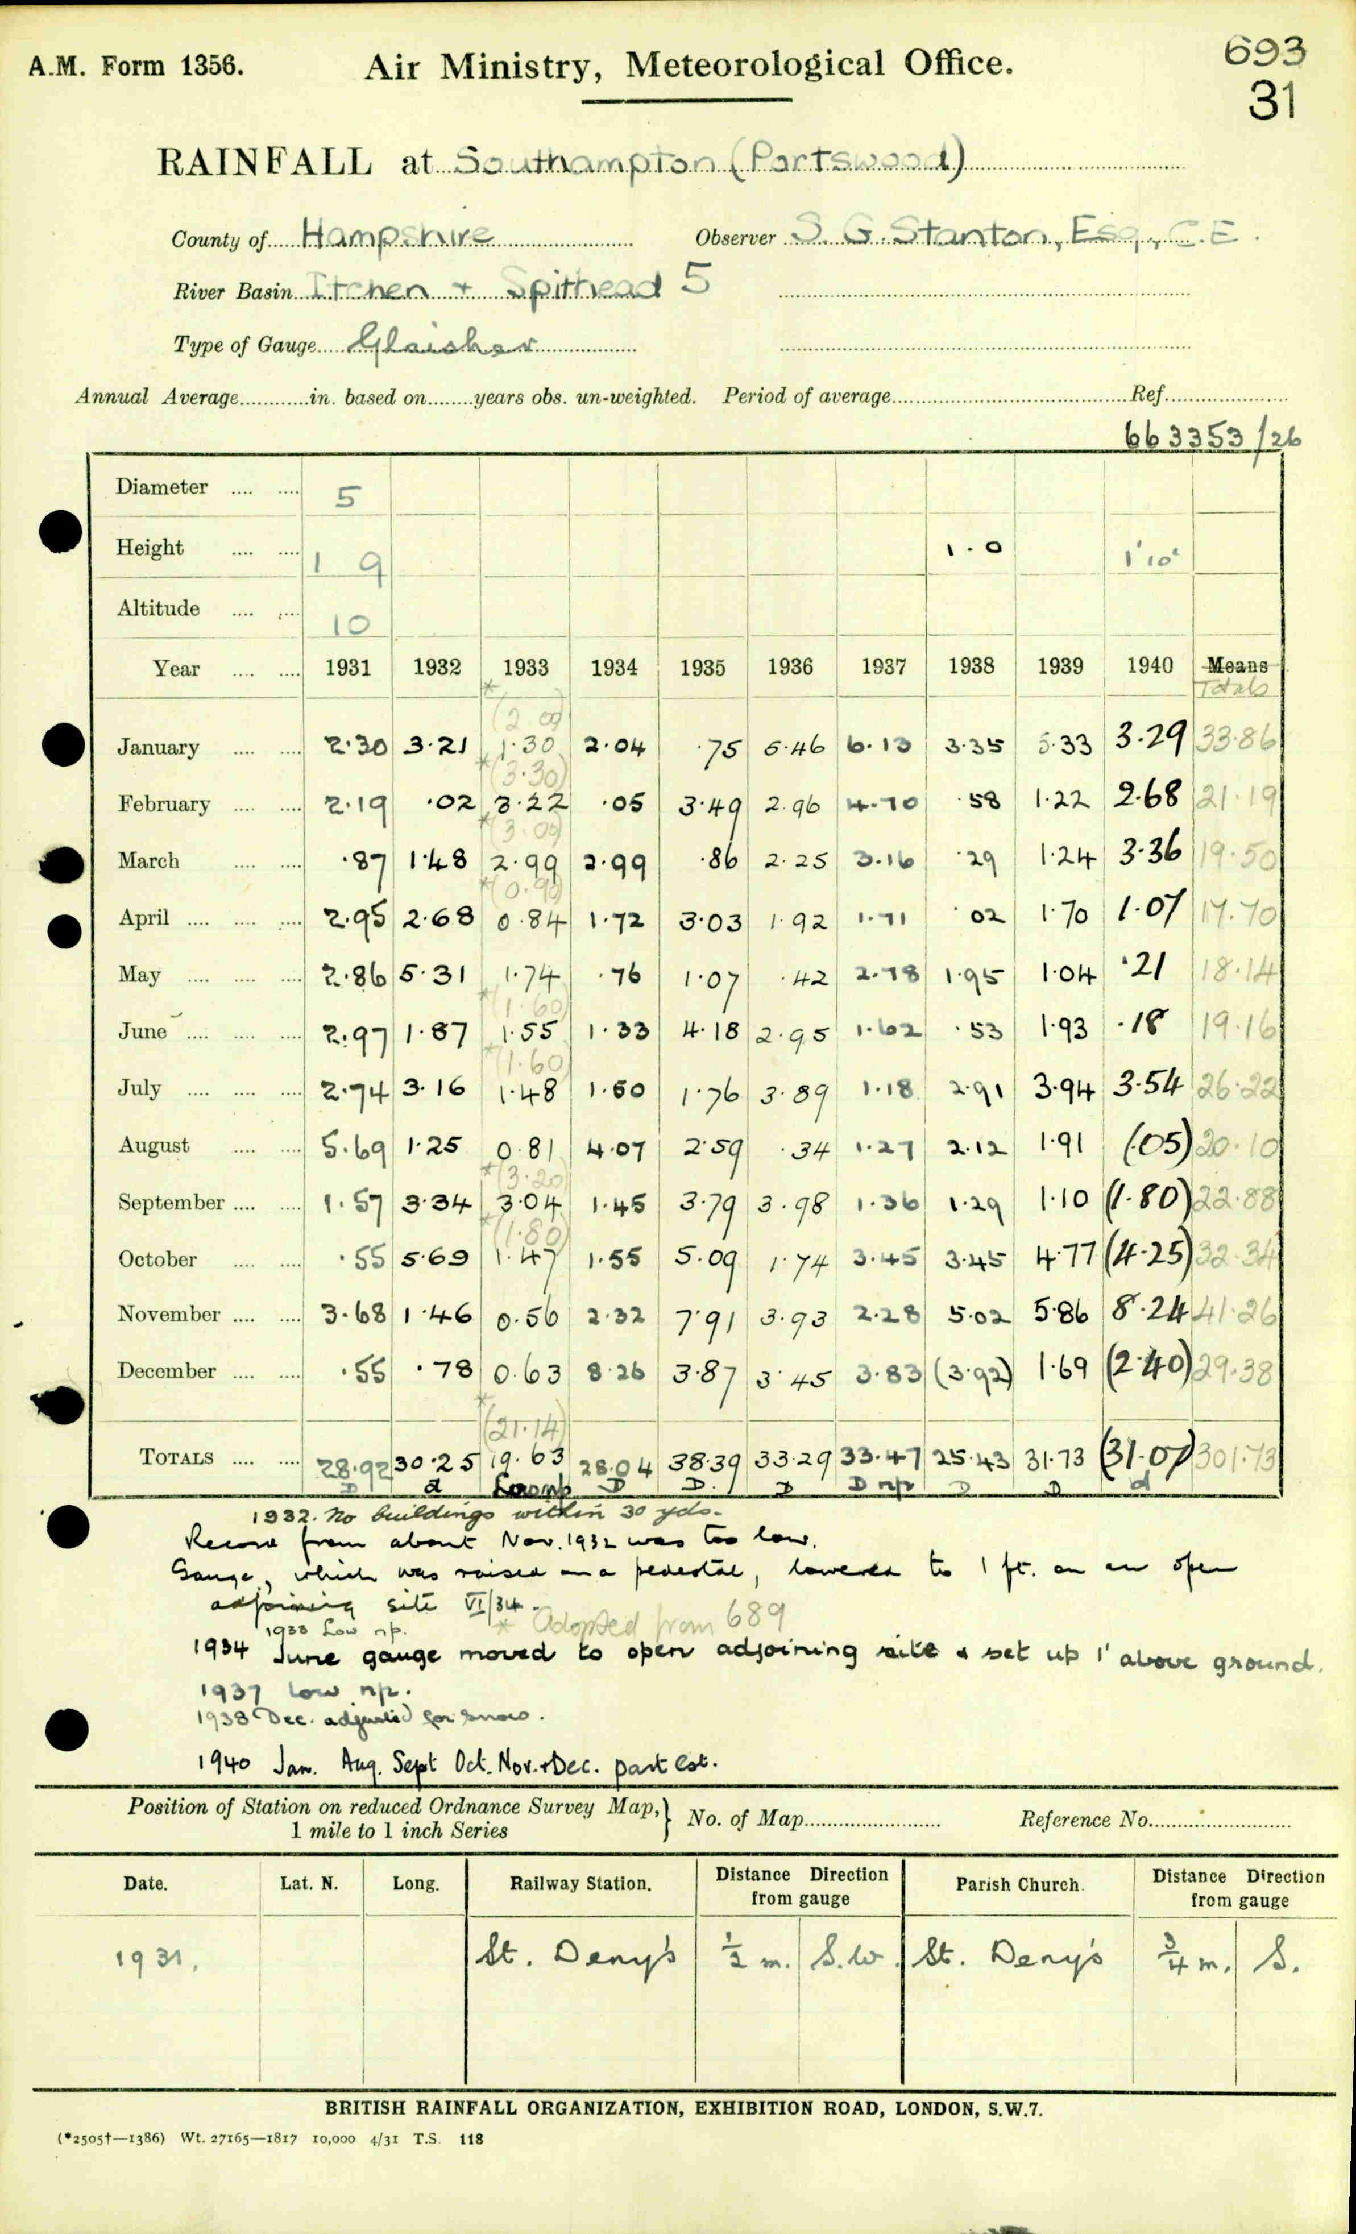 A.M. Form 1356.
Air Ministry, Meteorological Office.
693
31
RAINFALL at Southampton (Portswood)
County of Hampshire Observer S. G. Stanton, Esq., C.E.
River Basin Itchen + Spithead 5
Type of Gauge Glaisher
Annual Average............in. based on........years obs. un-weighted. Period of average........................................Ref.....................
663353/26
Diameter .... .... 5
Height .... .... 1 9 1.0 1'10"
Altitude .... .... 10
Year .... .... 1931 1932 1933 1934 1935 1936 1937 1938 1939 1940 Means
* Totals
(2.00)
January .... .... 2.30 3.21 1.30 2.04 .75 5.46 6.13 3.35 5.33 3.29 33.86
*(3.30)
February .... .... 2.19 .02 3.22 .05 3.49 2.96 4.70 .58 1.22 2.68 21.19
*(3.00)
March .... .... .87 1.48 2.99 2.99 .86 2.25 3.16 .29 1.24 3.36 19.50
*(0.90)
April .... .... .... 2.95 2.68 0.84 1.72 3.03 1.92 1.71 .02 1.70 1.07 17.70
May .... .... .... 2.86 5.31 1.74 .76 1.07 .42 2.78 1.95 1.04 .21 18.14
*(1.60)
June .... .... .... 2.97 1.87 1.55 1.33 4.18 2.95 1.62 .53 1.93 .18 19.16
*(1.60)
July .... .... .... 2.74 3.16 1.48 1.50 1.76 3.89 1.18 2.91 3.94 3.54 26.22
August .... .... 5.69 1.25 0.81 4.07 2.59 .34 1.27 2.12 1.91 (.05) 20.10
*(3.20)
September .... .... 1.57 3.34 3.04 1.45 3.79 3.98 1.36 1.29 1.10 (1.80) 22.88
*(1.80)
October .... .... .55 5.69 1.47 1.55 5.09 1.74 3.45 3.45 4.77 (4.25) 32.34
November .... .... 3.68 1.46 0.56 2.32 7.91 3.93 2.28 5.02 5.86 8.24 41.26
December .... .... .55 .78 0.63 8.26 3.87 3.45 3.83 (3.92) 1.69 (2.40) 29.38
*
(21.14)
TOTALS .... .... 28.92 30.25 19.63 28.04 38.39 33.29 33.47 25.43 31.73 (31.07) 301.73
D d Low np D D. D D np D D d
1932. No buildings within 30 yds.
Record from about Nov. 1932 was too low.
Gauge, which was raised on a pedestal, lowered to 1 ft. on an open
adjoining site VI/34.
1933 Low np. * Adopted from 689
1934 June gauge moved to open adjoining site & set up 1' above ground.
1937 low np.
1938 Dec. adjusted for snow.
1940 Jan. Aug. Sept Oct. Nov. + Dec. part Est.
Position of Station on reduced Ordnance Survey Map,} No. of Map......................... Reference No..........................
1 mile to 1 inch Series
Date. Lat. N. Long. Railway Station. Distance Direction from gauge Parish Church. Distance Direction from gauge
1931. St. Deny's ½ m. S.W. St. Deny's ¾ m. S.
BRITISH RAINFALL ORGANIZATION, EXHIBITION ROAD, LONDON, S.W.7.
(*2505†—1386) Wt. 27165—1817 10,000 4/31 T.S. 118